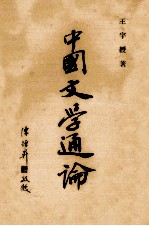 王宇綏著
中國文學通論